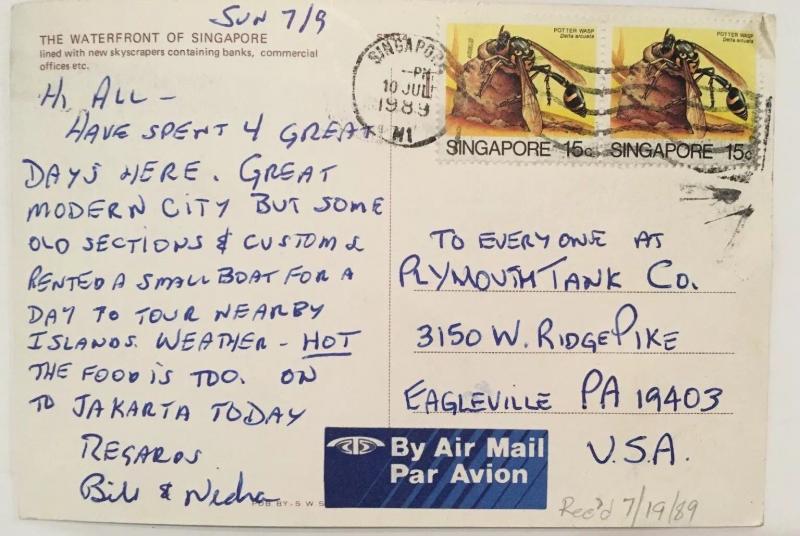 SUN 7/9
THE WATERFRONT OF SINGAPORE
lined with new skyscrapers containing banks, commercial
offices etc.
HI ALL –
HAVE SPENT 4 GREAT
DAYS HERE. GREAT
MODERN CITY BUT SOME
OLD SECTIONS & CUSTOMS
RENTED A SMALL BOAT FOR A
DAY TO TOUR NEARBY
ISLANDS. WEATHER – HOT
THE FOOD IS TOO. ON
TO JAKARTA TODAY
REGARDS
Bill & Nedra
PUB. BY. S.W.S
SINGAPORE
–PM
10 JUL
1989
POTTER WASP
Delta arcuata
SINGAPORE 15c
POTTER WASP
Delta arcuata
SINGAPORE 15c
TO EVERYONE AT
PLYMOUTH TANK CO.
3150 W. RIDGE PIKE
EAGLEVILLE PA 19403
U.S.A.
By Air Mail
Par Avion
Rec'd 7/19/89